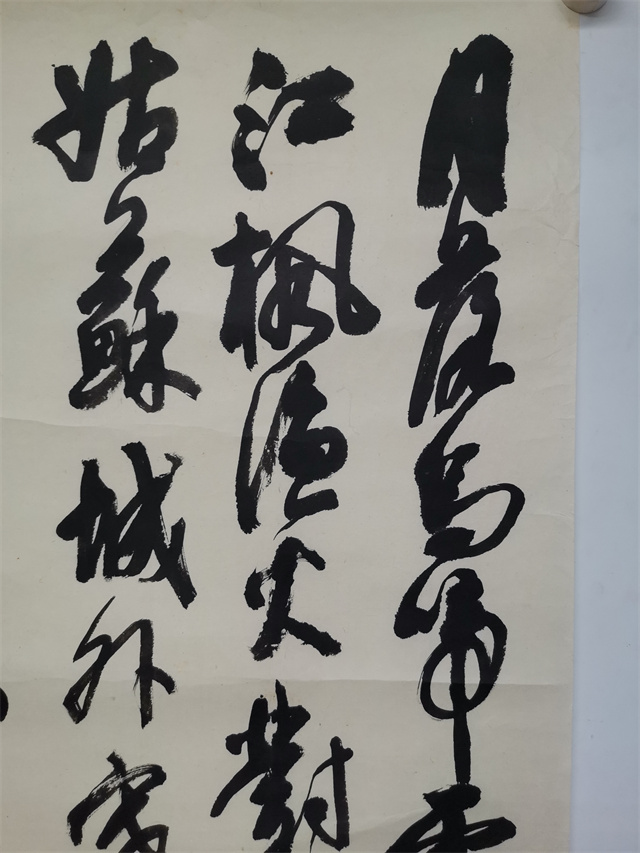 月落烏啼
江楓漁火對
姑蘇城外寒